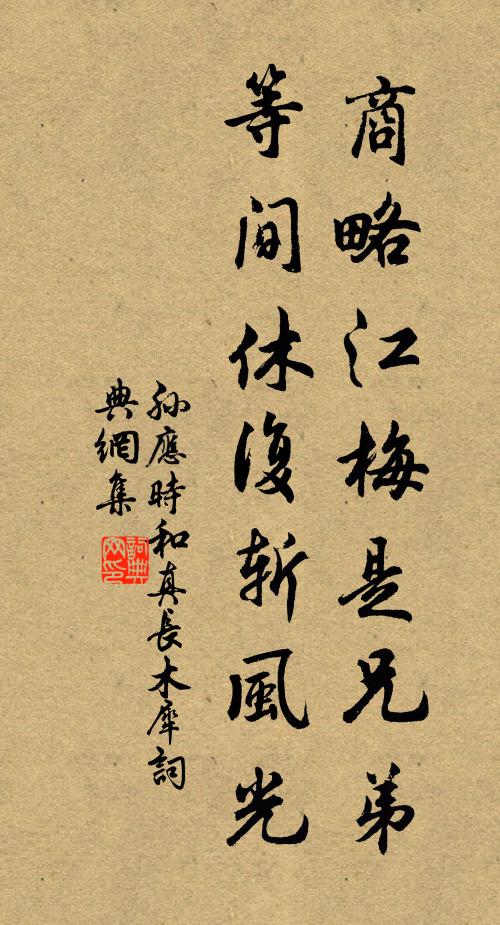 商略江梅是兄弟
等間休復斬風光
孫應時和真長木犀詞
典網集
詞典網印